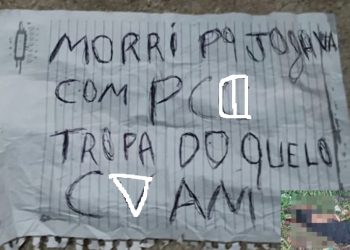 MORRI PQ JOGAVA
COM PC
TROPA DO QUELO
C AM